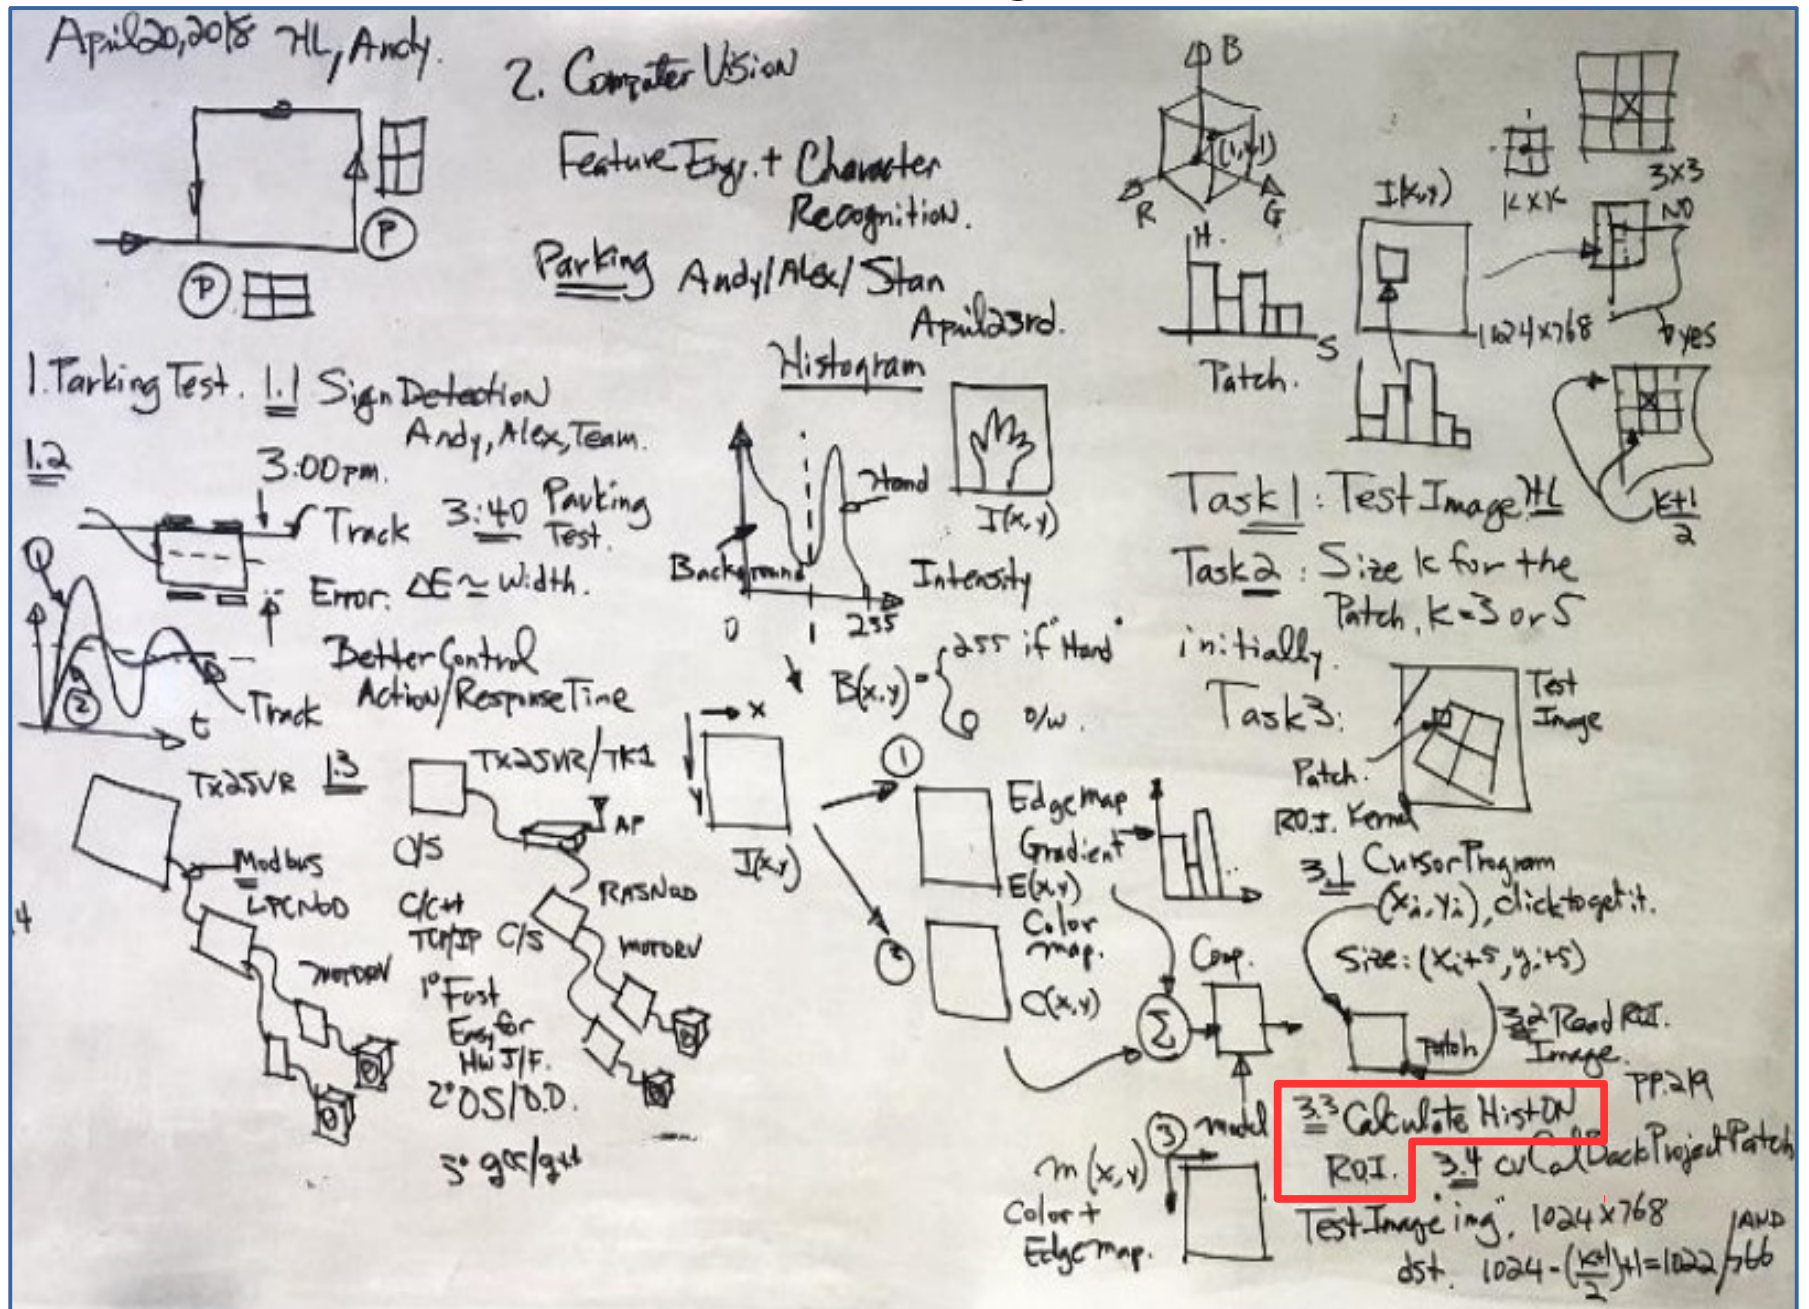 April 20, 2018 HL, Andy.
2. Computer Vision
Feature Engr. + Character
Recognition.
Parking Andy/Alex/Stan
April 23rd.
P
P
1. Parking Test. 1.1 Sign Detection
Andy, Alex, Team.
1.2
3:00pm.
Track 3:40 Parking
Test.
Error: ΔE ≃ Width.
Better Control
Action/Response Time
Track
t
2
Tx2SVR 1.3
Modbus
MOTORV
Tx2SVR/TK1
AP
C/S
C/C++
TCP/IP C/S
MOTORV
1° Fast
Easy for
HW I/F.
2° OS/D.D.
3° gcc/g++
Histogram
Hand
I(x,y)
Background
Intensity
0 1 255
B(x,y) = 255 if "Hand"
0 o/w.
x
y
I(x,y)
1
Edge map
Gradient
E(x,y)
2
Color
map.
C(x,y)
Σ
Comp.
3 model
m(x,y)
Color +
Edge map.
B
(1,1,1)
R
G
H.
S
Patch.
I(x,y)
1024x768
KxK
3x3
NO
yes
k+1
2
Task 1: Test Image. HL
Task 2: Size k for the
Patch, k=3 or 5
initially.
Task 3:
Test
Image
Patch.
R.O.I. Kernel
3.1 Cursor Program
(xi, yi), click to get it.
Size: (xi+5, yi+5)
Patch
3.2 Read ROI.
Image.
PP.219
3.3 Calculate Hist ON
R.O.I. 3.4 cvCalBackProjectPatch
Test Image "img", 1024x768
dst. 1024-(k+1/2)+1=1022/766
AND